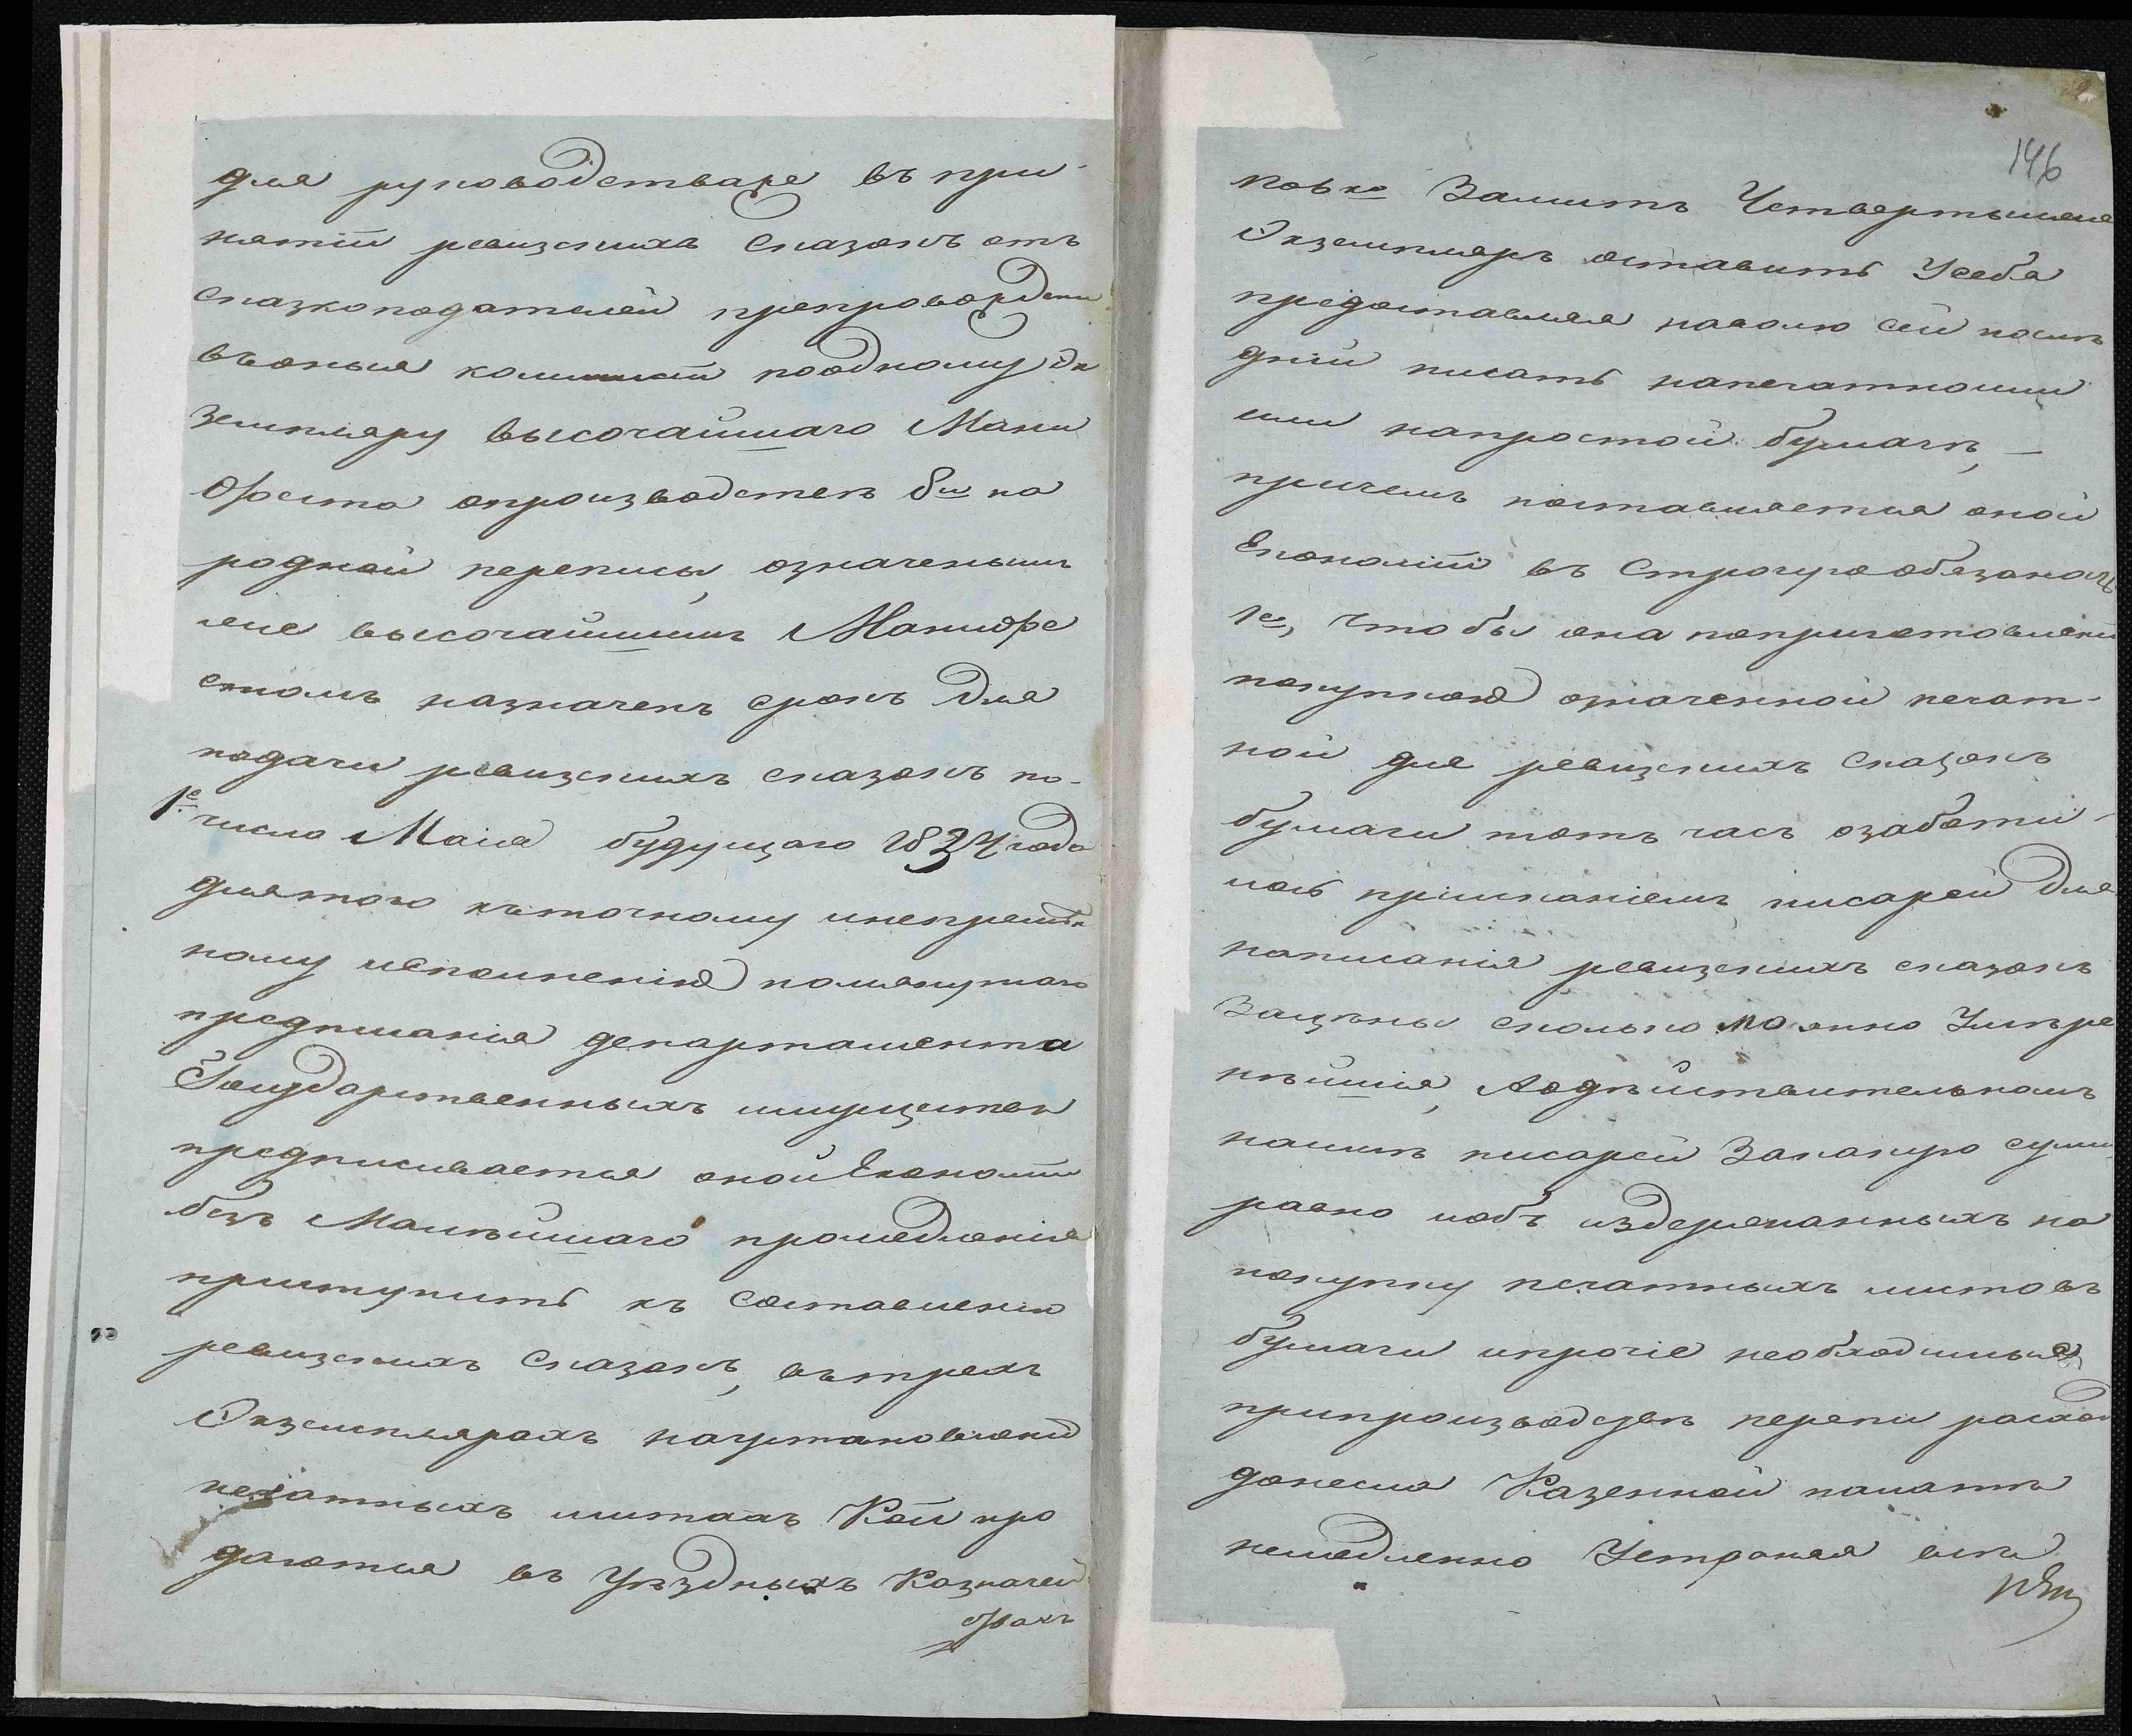 для руководстваже въ при-
нятіи ревизскихъ сказокъ отъ
сказкоподателей препровождены
въоныя комисіи поодному эк
земпляру высочайшаго Мани
феста опроизводстве 8й на
родной переписи, означеннымъ
же высочайшимъ Манифе
стомъ назначенъ срокъ для
подачи ревизскихъ сказокъ по-
1е число Маія будущаго 1834 года
длятого къточному инепремѣн
ному исполненію помянутаго
предписанія департамента
Государственныхъ имуществъ
предписывается оной Економіи
безъ Малѣйшаго промедленія
приступить къ составленію
ревизскихъ сказокъ, въ трехъ
Экземплярахъ наустановленныхъ
печатныхъ листахъ Кои про
даются въ Уѣздныхъ Казначей
ствахъ
146
Четвертыйже
Экземпляръ оставить Усебя
предоставляя наволю сей послѣ
дній писать напечатномъ
или напростой бумагѣ, —
причемъ поставляется оной
Економіи въ Строгую обязаность
1е, Чтобы она поприготовленіи
покупкою означенной печат-
ной для ревизскихъ сказокъ
бумаги тотъ часъ озаботи-
лась пріисканіемъ писарей для
написанія ревизскихъ сказокъ
Зацѣны сколько можно Умѣре
ннѣйшія, Аодѣйствительномъ
наймѣ писарей Закакую сумму
равно иобъ издержанныхъ на
покупку печатныхъ листовъ
бумаги ипрочіе необходимые
припроизводствѣ перепи расход
донесла Казенной палатѣ
немедленно Устроняя